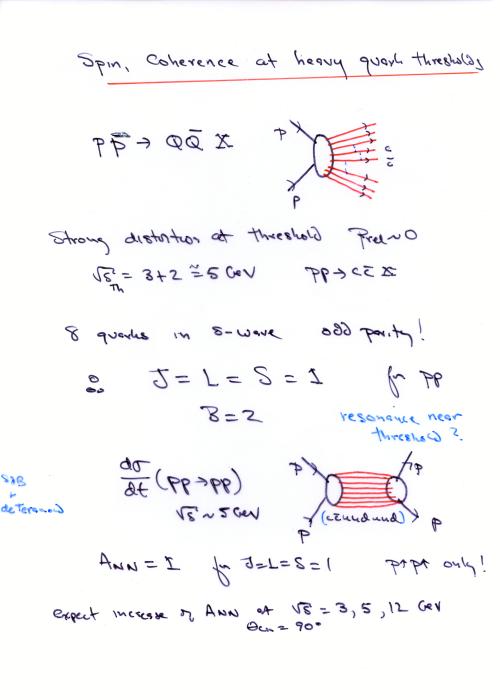 Spin, Coherence at heavy quark thresholds
p p̄ → Q Q̄ X
p
p
c
c̄
Strong distortion at threshold Prel ~ 0
√s Th = 3+2 ≅ 5 GeV pp → c c̄ X
8 quarks in s-wave odd parity!
∴ J = L = S = 1 for pp
B = 2
resonance near
threshold?
SJB
+
de Teramond
dσ/dt (pp → pp)
√s ~ 5 GeV
p
p
p
p
(c c̄ u u d u u d)
ANN = 1 for J=L=S=1 p↑p↑ only!
expect increase of ANN at √s = 3, 5, 12 GeV
θcm = 90°